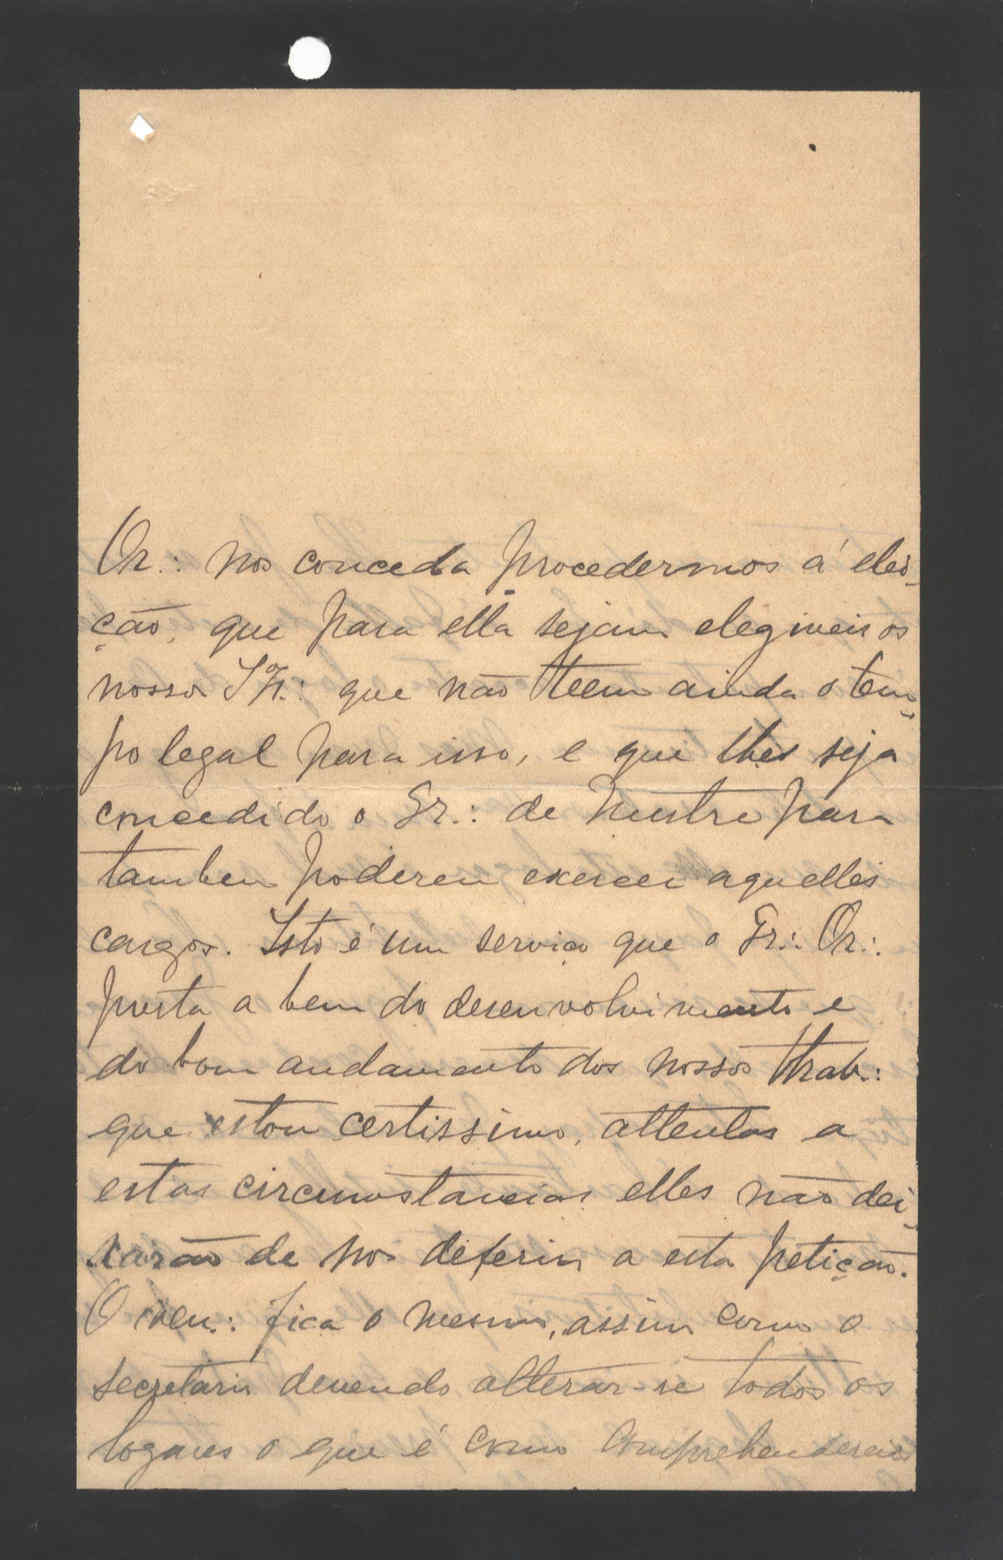 Or.: nos conceda procedermos á elei-
ção, que para ella sejam elegiveis os
nossos IIr.: que não teem ainda o tem-
po legal para isso, e que lhes seja
concedido o Gr.: de Mestre para
tambem poderem exercer aquelles
cargos. Isto é um serviço que o Gr.: Or.:
presta a bem do desenvolvimento e
do bom andamento dos nossos trab.:
que estou certissimo, attentas a
estas circumstancias elles não dei-
xarão de nos deferir a esta petição.
O Ven.: fica o mesmo, assim como o
secretario devendo alterar-se todos os
logares o que é como comprehendereis